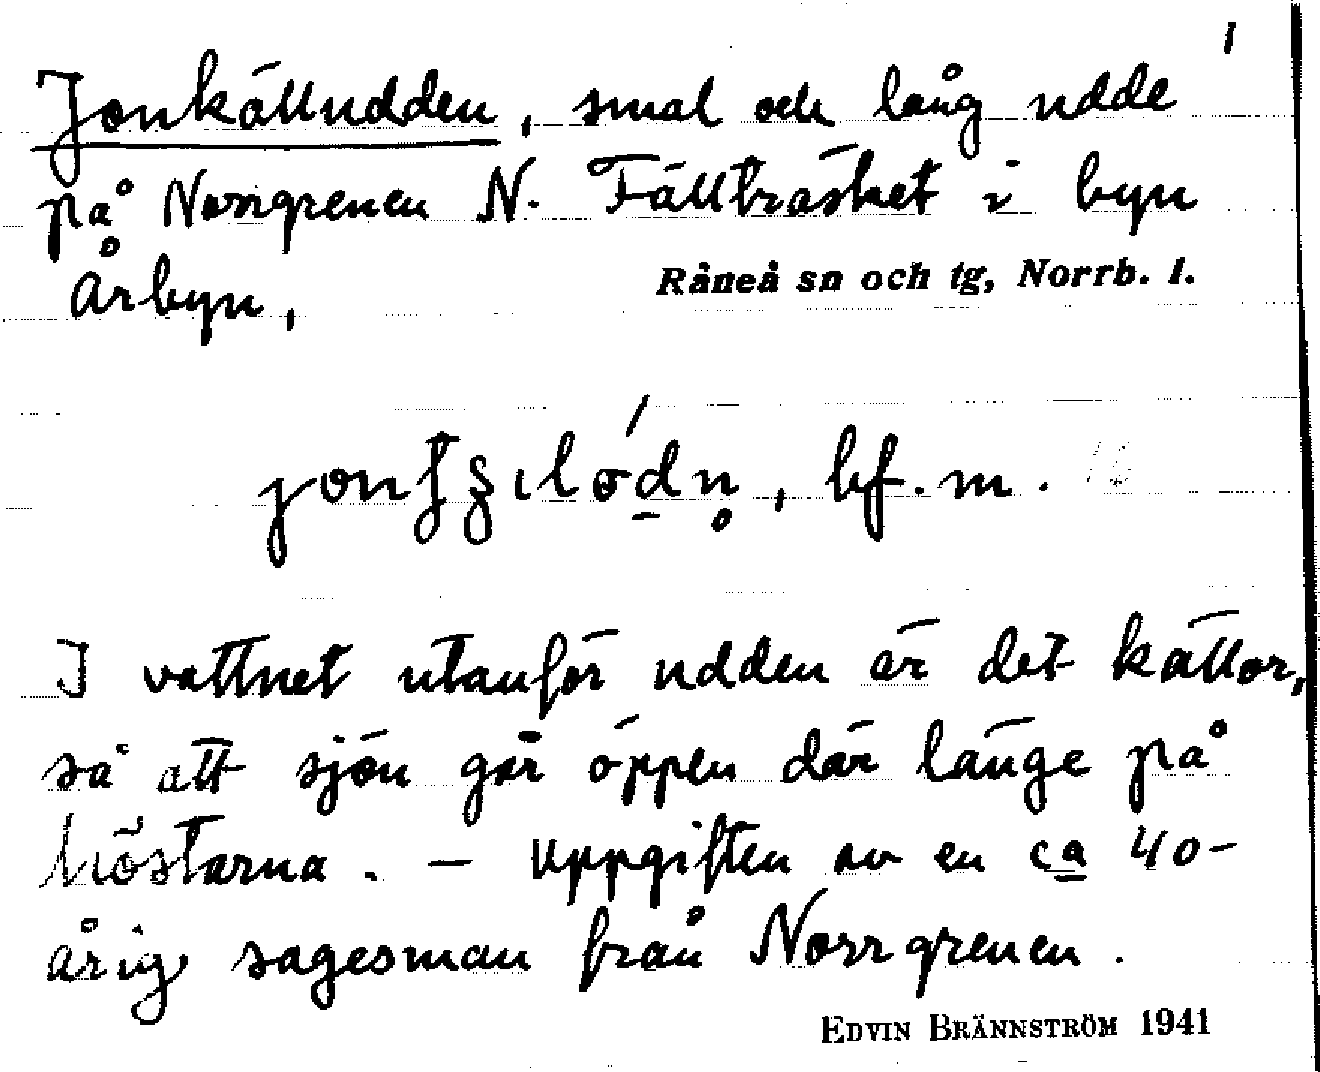 1
Jonkälludden, smal och lång udde
på Norrgrenen N. Fällträsket i byn
Årbyn, Råneå sn och tg, Norrb. l.
bf. m.
I vattnet utanför udden är det källor,
så att sjön går öppen där länge på
höstarna. — Uppgiften av en ca 40-
årig sagesman från Norrgrenen.
EDVIN BRÄNNSTRÖM 1941